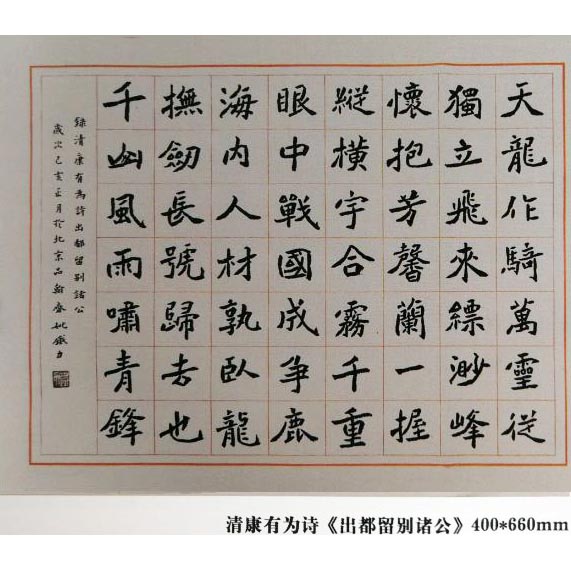 天龍作騎萬靈從
獨立飛來縹渺峰
懷抱芳馨蘭一握
縱橫宇合霧千重
眼中戰國成争鹿
海内人材孰臥龍
撫劒長號歸去也
千山風雨嘯青鋒
錄清康有為詩出都留别諸公
歲次己亥正月於北京品翰齋姚力
清康有为诗《出都留别诸公》400*660mm